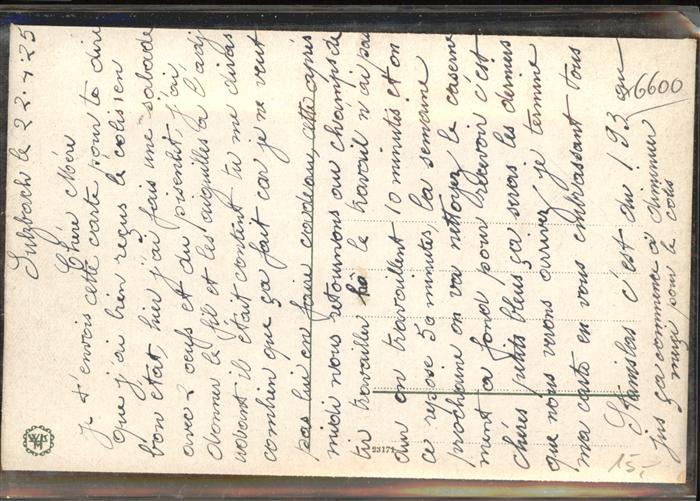 Sulzbach le 22.4.25
Chère Mère
je t'envois cette carte pour te dire
que j'ai bien reçus le colis en
bon état, hier j'ai fais une salade
avec 2 oeufs et du pissenlit, j'ai
donner le fil et les aiguilles a l'adj
uvant il était content tu me diras
combien que ça fait car je ne veut
pas lui en faire cadeau, cette après
midi nous retournons au champs de
tir travailler le travail n'ai pas
dur on travaillent 10 minutes et on
ce repose 50 minutes, la semaine
prochaine on va nettoyez la caserne
ment a fond pour recevoir c'est
chères petits bleus ça seras les derniers
que nous verons arrivez je termine
ma carte en vous embrassant tous
Stanislas c'est du ! 93 au
jus ça commence à diminuer
mimi pour le cous
6600
WM
23171
15,-